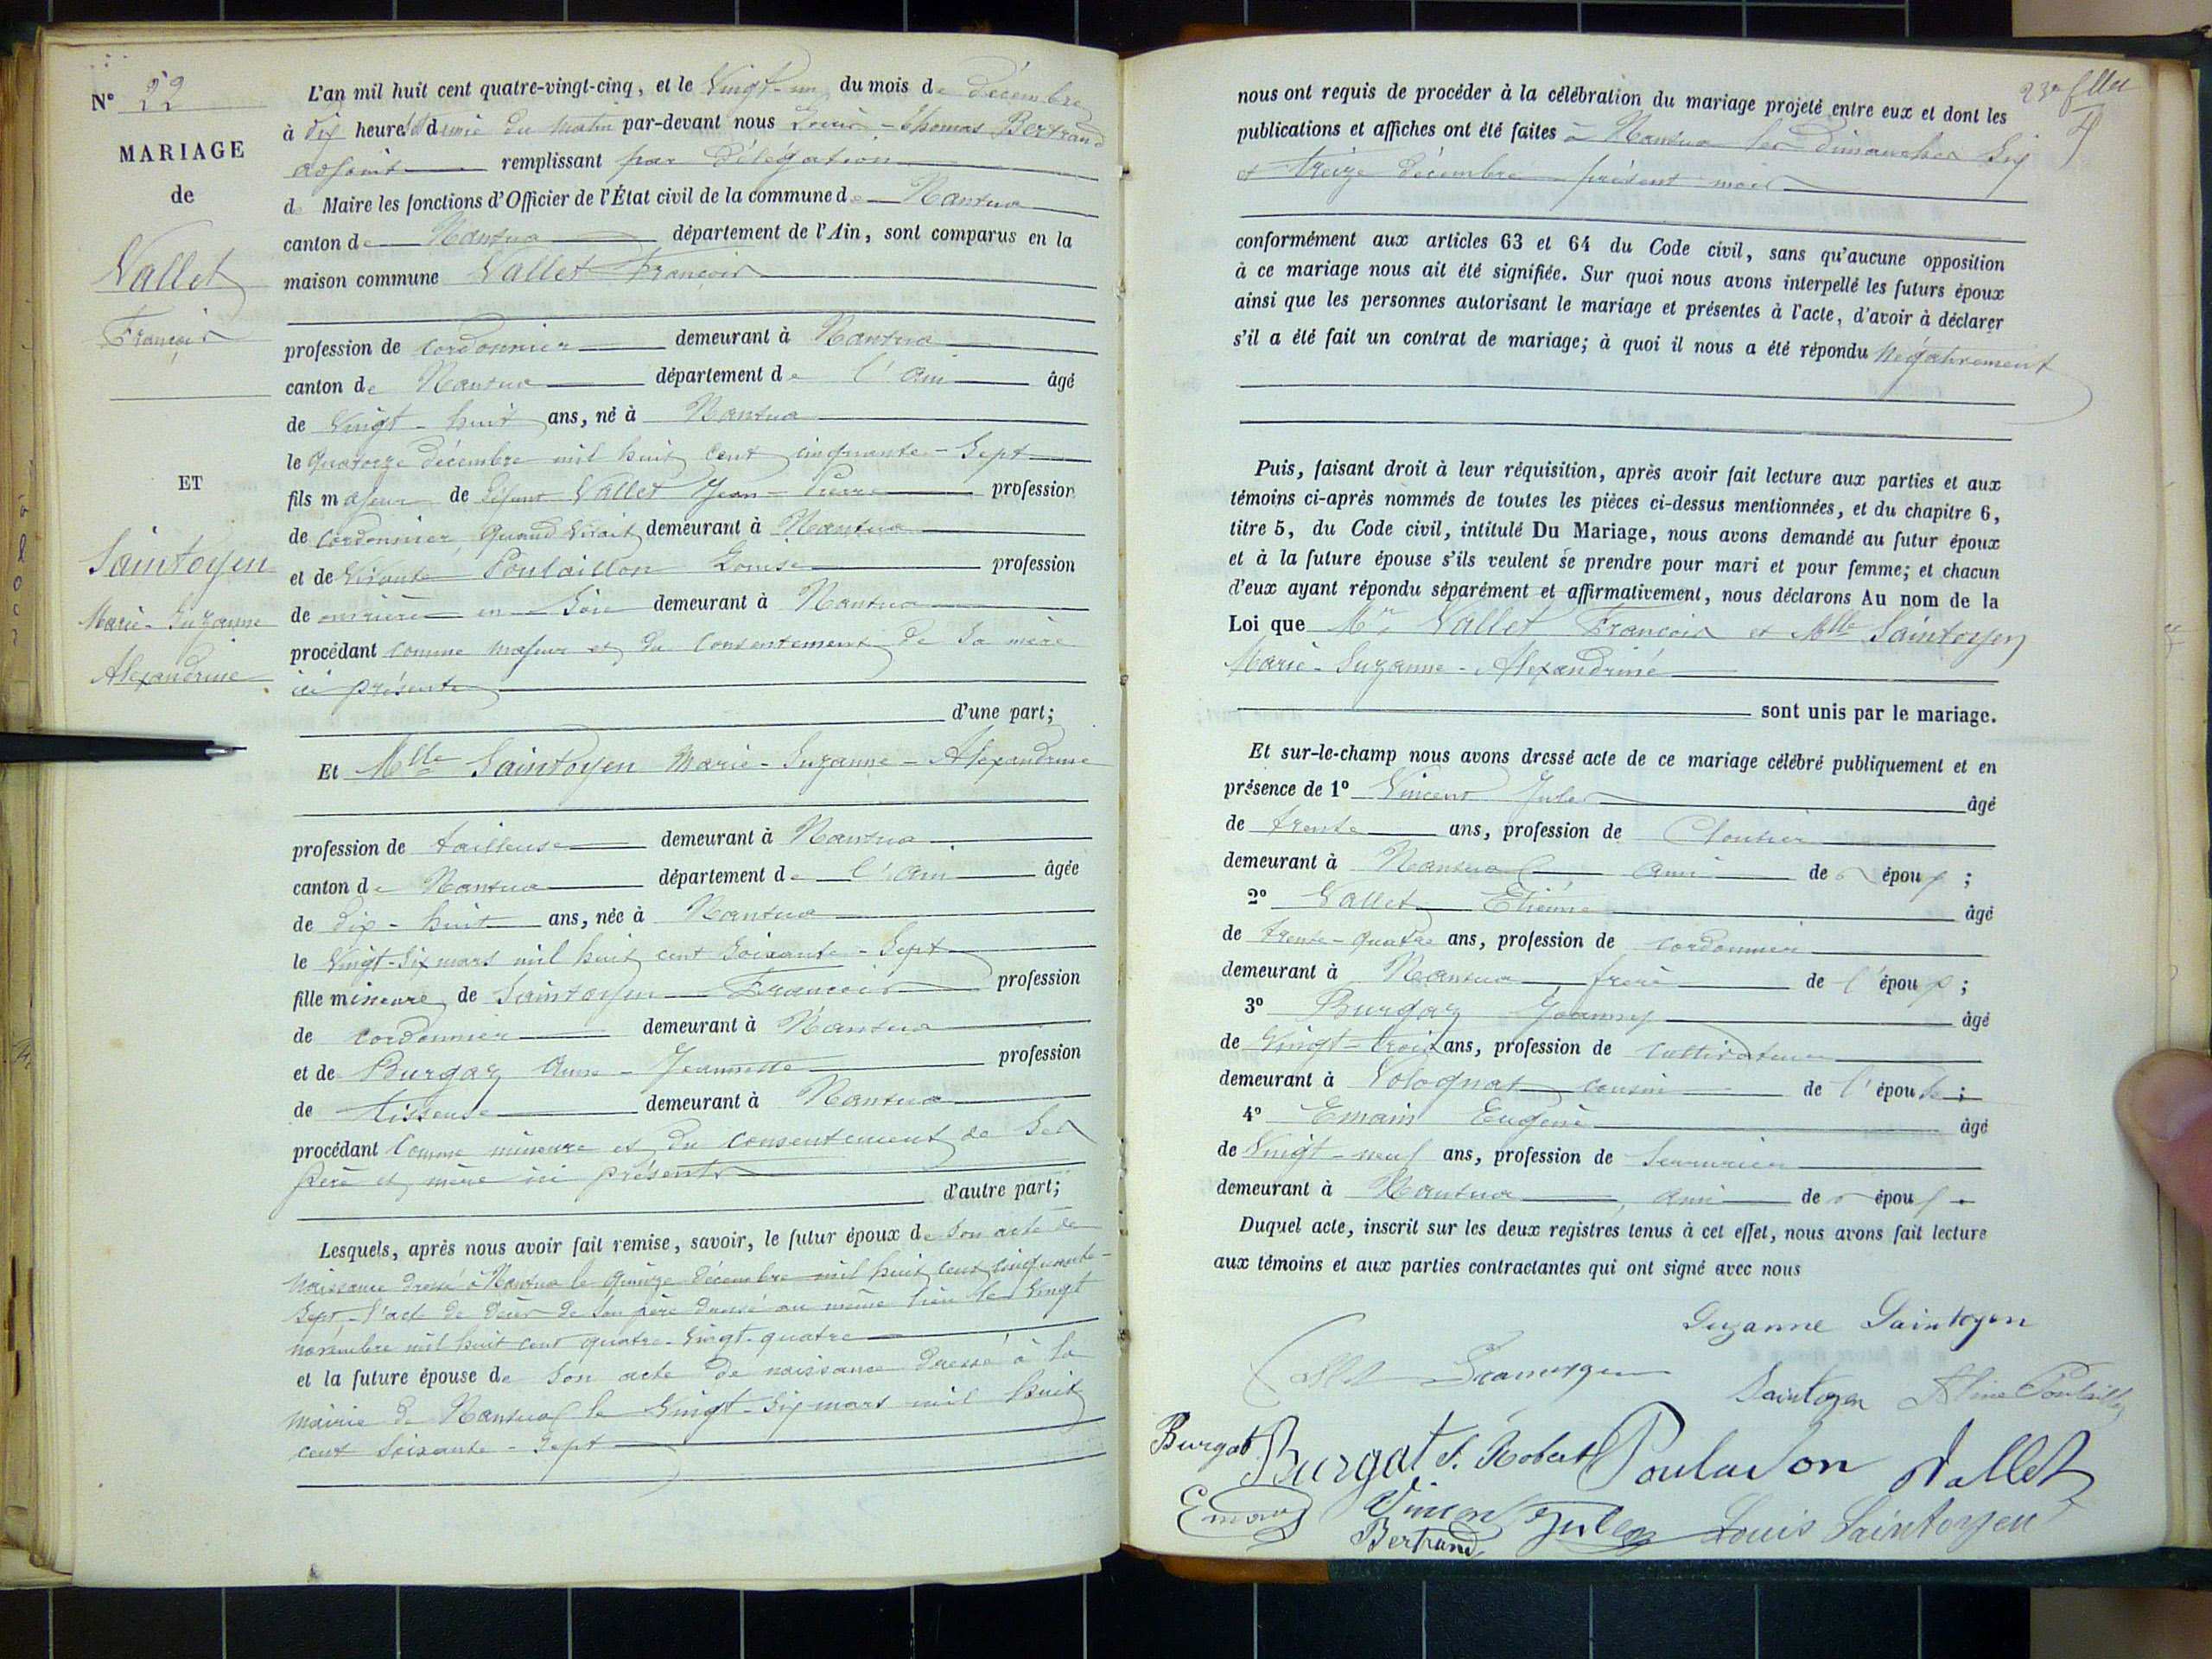 N° 22
MARIAGE
de
Vallet
François
ET
Saintoyen
Marie-Suzanne
Alexandrine
L'an mil huit cent quatre-vingt-cinq, et le Vingt-un du mois de décembre
à dix heures et demie du matin par-devant nous Louis-Thomas Bertrand
adjoint remplissant par délégation
d Maire les fonctions d'Officier de l'État civil de la commune de Nantua
canton de Nantua département de l'Ain, sont comparus en la
maison commune Vallet François
profession de cordonnier demeurant à Nantua
canton de Nantua département de l'Ain âgé
de Vingt-huit ans, né à Nantua
le quatorze décembre mil huit cent cinquante-Sept
fils majeur de défunt Vallet Jean-Pierre profession
de cordonnier, quand vivait demeurant à Nantua
et de vivante Poulaillon Louise profession
de ouvrière en soie demeurant à Nantua
procédant comme majeur et du consentement de sa mère
ici présente
d'une part;
Et Mlle Saintoyen Marie-Suzanne-Alexandrine
profession de tailleuse demeurant à Nantua
canton de Nantua département de l'Ain âgée
de dix-huit ans, née à Nantua
le Vingt-Six mars mil huit cent soixante-Sept
fille mineure de Saintoyen François profession
de cordonnier demeurant à Nantua
et de Burgaz Anne-Jeannette profession
de tisseuse demeurant à Nantua
procédant comme mineure et du consentement de Ses
père et mère ici présents
d'autre part;
Lesquels, après nous avoir fait remise, savoir, le futur époux de son acte de
naissance dressé à Nantua le quinze décembre mil huit cent cinquante-
Sept, l'acte de décès de son père dressé au même lieu le Vingt
novembre mil huit cent quatre-vingt-quatre
et la future épouse de son acte de naissance dressé à la
mairie de Nantua le Vingt-Six mars mil huit
cent soixante-Sept
nous ont requis de procéder à la célébration du mariage projeté entre eux et dont les
publications et affiches ont été faites à Nantua les dimanches Six
et treize décembre présent mois
conformément aux articles 63 et 64 du Code civil, sans qu'aucune opposition
à ce mariage nous ait été signifiée. Sur quoi nous avons interpellé les futurs époux
ainsi que les personnes autorisant le mariage et présentes à l'acte, d'avoir à déclarer
s'il a été fait un contrat de mariage; à quoi il nous a été répondu Négativement
Puis, faisant droit à leur réquisition, après avoir fait lecture aux parties et aux
témoins ci-après nommés de toutes les pièces ci-dessus mentionnées, et du chapitre 6,
titre 5, du Code civil, intitulé Du Mariage, nous avons demandé au futur époux
et à la future épouse s'ils veulent se prendre pour mari et pour femme; et chacun
d'eux ayant répondu séparément et affirmativement, nous déclarons Au nom de la
Loi que Mr Vallet François et Mlle Saintoyen
Marie-Suzanne-Alexandrine
sont unis par le mariage.
Et sur-le-champ nous avons dressé acte de ce mariage célébré publiquement et en
présence de 1° Vincent Jules âgé
de trente ans, profession de Cloutier
demeurant à Nantua, ami des époux;
2° Vallet Etienne âgé
de trente-quatre ans, profession de cordonnier
demeurant à Nantua, frère de l'époux;
3° Burgaz Joanny âgé
de Vingt-trois ans, profession de Cultivateur
demeurant à Volognat cousin de l'épouse;
4° Emain Eugène âgé
de Vingt-neuf ans, profession de Serrurier
demeurant à Nantua, ami des époux.
Duquel acte, inscrit sur les deux registres tenus à cet effet, nous avons fait lecture
aux témoins et aux parties contractantes qui ont signé avec nous
Suzanne Saintoyen
Saintoyen Aline Poulaillon
Burgat Burgat J. Robert Poulaillon Vallet
Emain Vincent Jules Louis Saintoyen
Bertrand